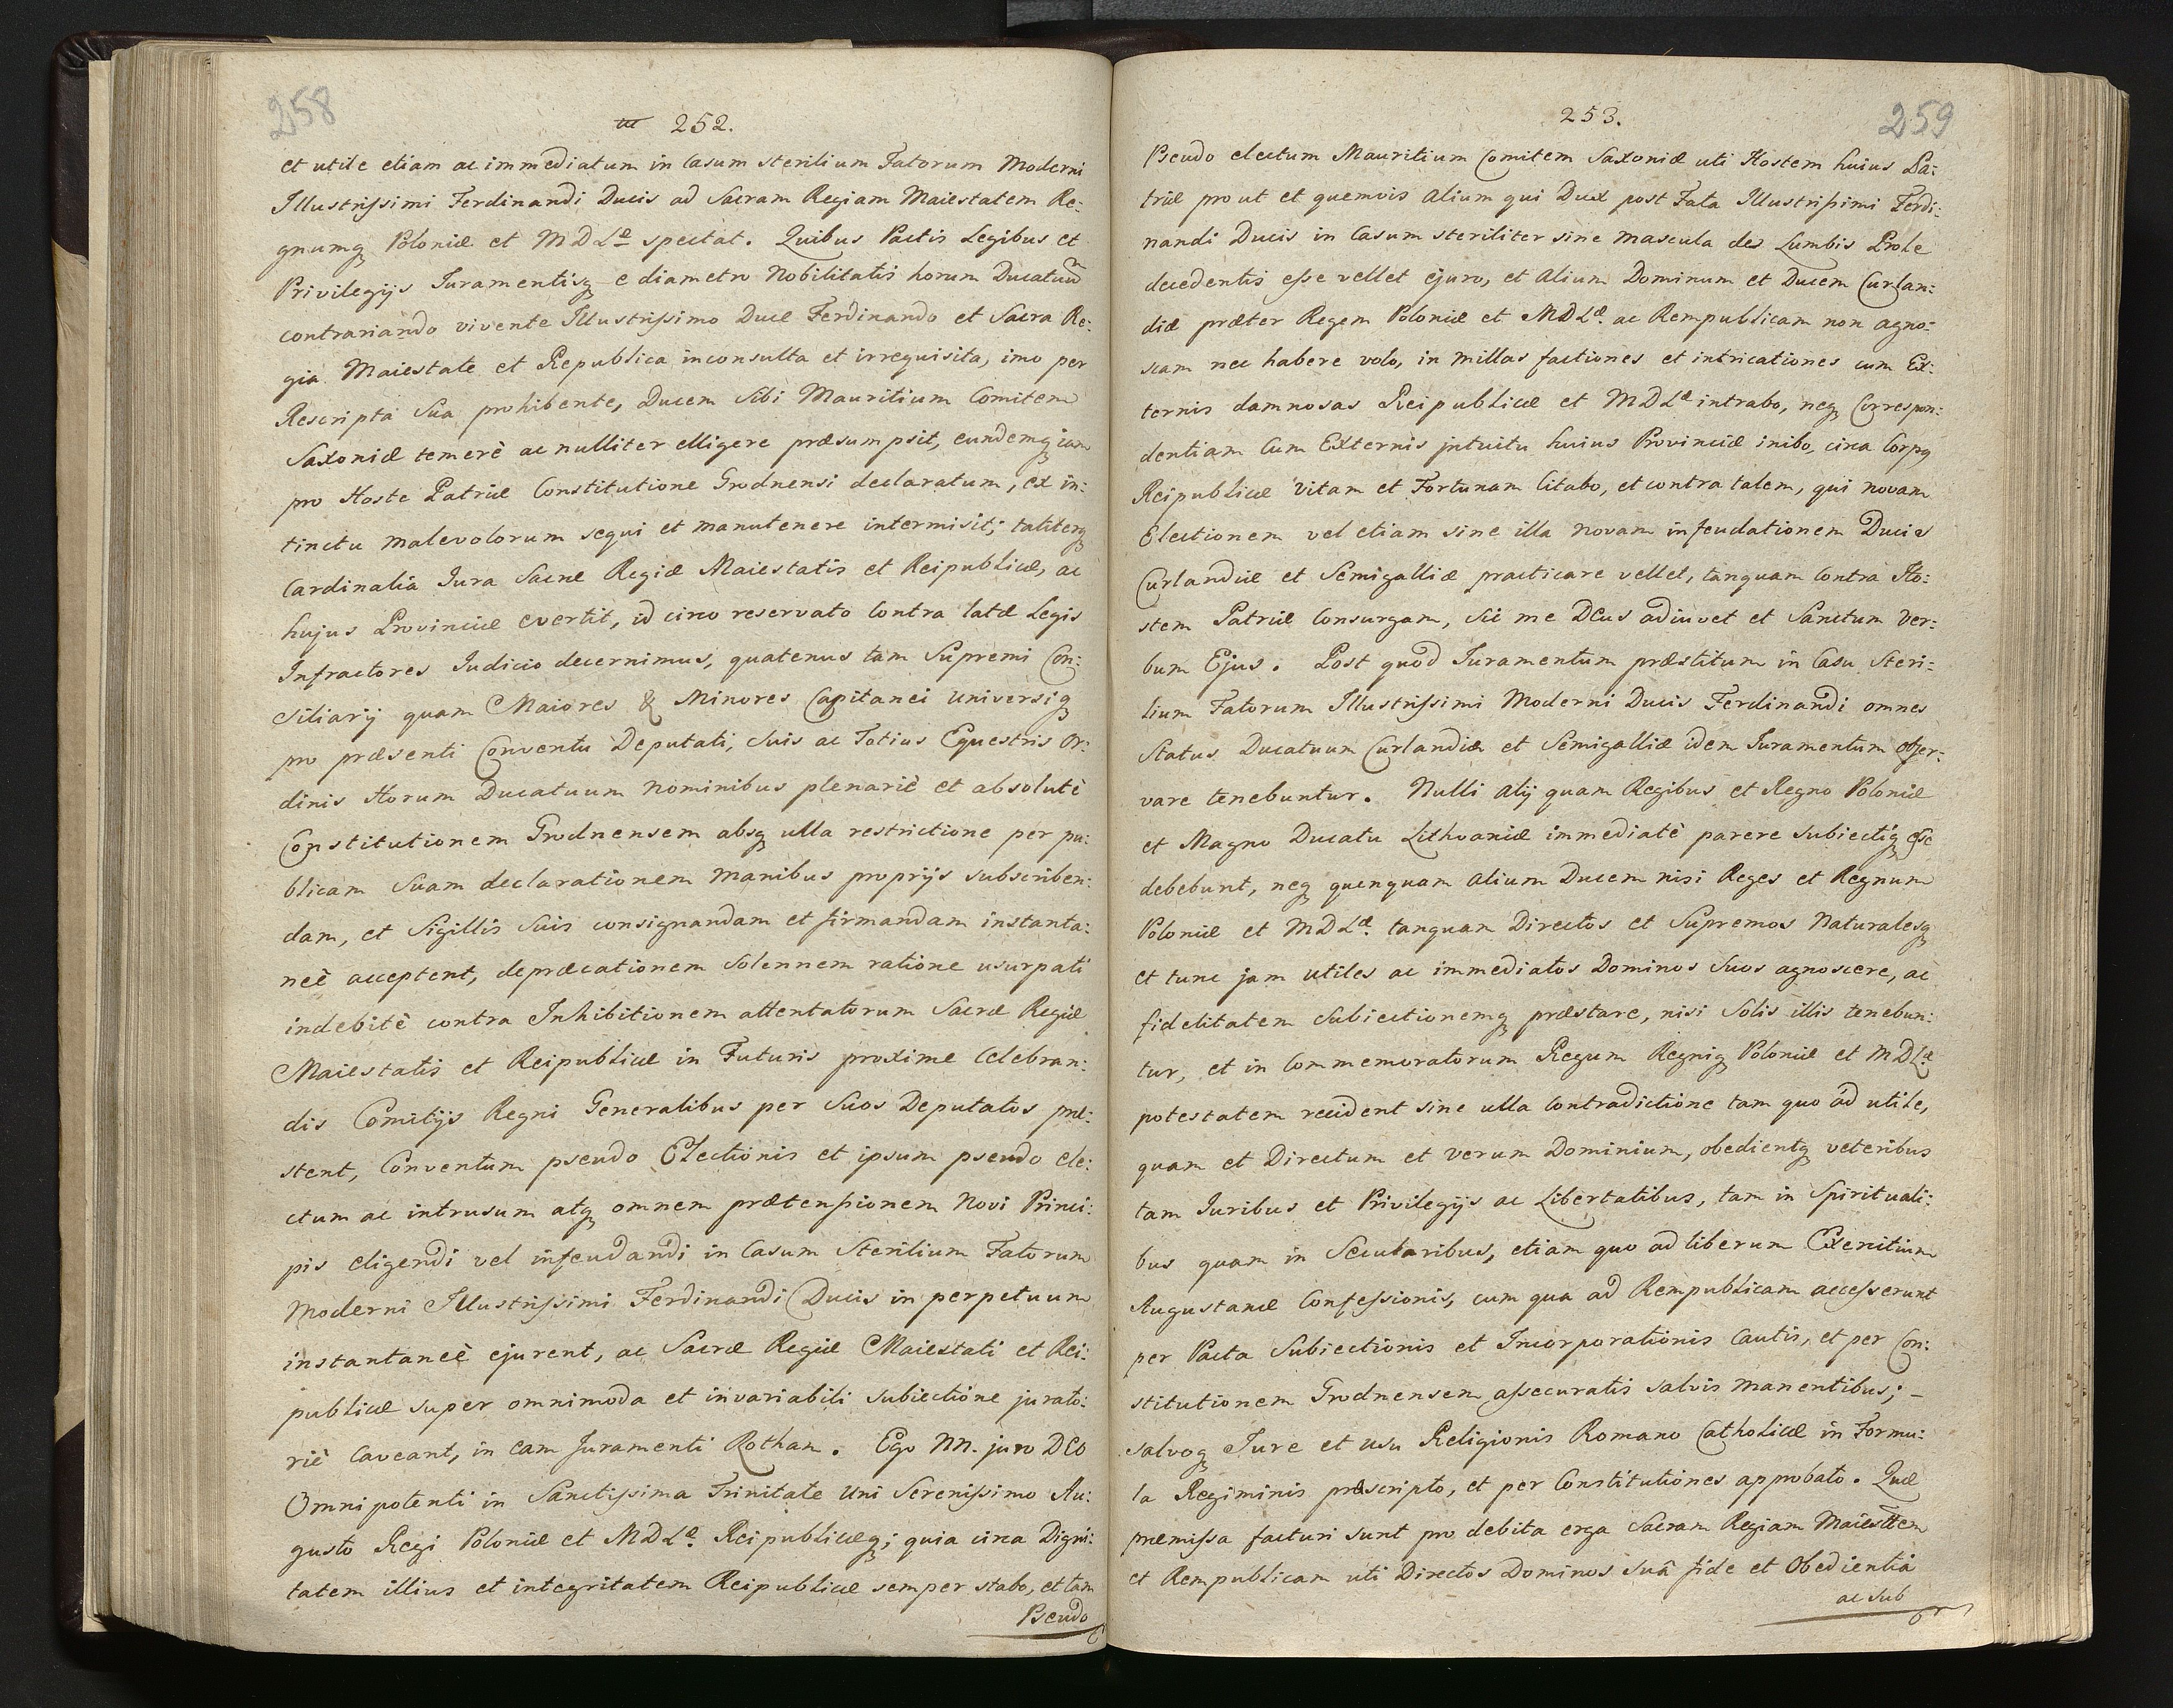 258
252.
et utile etiam ac immediatum in Casum sterilium Fatorum Moderni
Illustrissimi Ferdinandi Ducis ad Sacram Regiam Maiestatem Re:
gnumq Poloniæ et MDLæ spectat. Quibus Pactis Legibus et
Privilegijs Juramentisq e diametro Nobilitatis horum Ducatuum
contrariando vivente Illustrissimo Duce Ferdinando et Sacra Re:
gia Maiestate et Republica inconsulta et irrequisita, imo per
Rescripta Sua prohibente, Ducem Sibi Mauritium Comitem
Saxoniæ temerè ac nulliter elligere præsumpsit, eundemq iam
pro Hoste Patriæ Constitutione Grodnensi declaratum, ex in:
tinctu malevolorum sequi et manutenere intermisit; taliterq
Cardinalia Jura Sacræ Regiæ Maiestatis et Reipublicæ, ac
hujus Provinciæ evertit, id circo reservato Contra latæ Legis
Infractores Iudicio decernimus, quatenus tam Supremi Con:
siliarij quam Maiores & Minores Capitanei Universiq
pro præsenti Conventu Deputati, Suis ac Totius Equestris Or:
dinis Horum Ducatuum Nominibus plenariè et absolutè
Constitutionem Grodnensem absq ulla restrictione per pu:
blicam Suam declarationem Manibus proprijs subscriben:
dam, et Sigillis Suis consignandam et firmandam instanta:
neè acceptent, depræcationem Solennem ratione usurpati
indebitè contra Inhibitionem attentatorum Sacræ Regiæ
Maiestatis et Reipublicæ in Futuris proxime Celebran:
dis Comitijs Regni Generalibus per Suos Deputatos præ:
stent, Conventum pseudo Electionis et ipsum pseudo ele:
ctum ac intrusum atq omnem prætensionem Novi Princi:
pis eligendi vel infeudandi in Casum Sterilium Fatorum
Moderni Illustrissimi Ferdinandi Ducis in perpetuum
instantaneè ejurent, ac Sacræ Regiæ Maiestati et Rei:
publicæ super omnimoda et invariabili Subiectione jurato:
riè Caveant, in eam Juramenti Rotham. Ego NN. juro DEO
Omnipotenti in Sanctissima Trinitate Uni Serenissimo Au:
gusto Regi Poloniæ et MDLæ. Reipublicæq; quia circa Digni:
tatem illius et integritatem Reipublicæ semper stabo, et tam
Pseudo
253.
259
Pseudo electum Mauritium Comitem Saxoniæ uti Hostem huius Pa:
triæ prout et quemvis Alium qui Dux post Fata Illustrissimi Ferdi:
nandi Ducis in Casum steriliter sine Mascula des Lumbis Prole
decedentis esse vellet ejuro, et Alium Dominum et Ducem Curlan:
diæ præter Regem Poloniæ et MDLæ. ac Rempublicam non agno:
scam nec habere volo, in millas factiones et intricationes cum Ex:
ternis damnosas Reipublicæ et MDLæ intrabo, neq Correspon:
dentiam Cum Externis jntuitu huius Provinciæ inibo, circa Corpq
Reipublicæ Vitam et Fortunam litabo, et contra talem, qui novam
Electionem vel etiam sine illa Novam infeudationem Ducis
Curlandiæ et Semigalliæ practicare vellet, tanquam Contra Ho:
stem Patriæ Consurgam, Sic me DEus adiuvet et Sanctum Ver:
bum Ejus. Post quod Juramentum præstitum in Casu Steri:
lium Fatorum Illustrissimi Moderni Ducis Ferdinandi omnes
Status Ducatuum Curlandiæ et Semigalliæ idem Juramentum obser:
vare tenebuntur. Nulli Alij quam Regibus et Regno Poloniæ
et Magno Ducatu Lithvaniæ immediatè parere Subiectiq esse
debebunt, neq quenquam Alium Ducem nisi Reges et Regnum
Poloniæ et MDLæ. tanquam Directos et Supremos Naturalesq
et tunc jam utiles ac immediatos Dominos Suos agnoscere, ac
fidelitatem Subiectionemq præstare, nisi Solis illis tenebun:
tur, et in Commemoratorum Regum Regniq Poloniæ et MDLæ
potestatem recident sine ulla Contradictione tam quo ad utile,
quam et Directum et verum Dominium, obedientq veteribus
tam Iuribus et Privilegijs ac Libertatibus, tam in Spirituali:
bus quam in Secularibus, etiam quo ad liberum Exercitium
Augustanæ Confessionis, cum qua ad Rempublicam accesserunt
per Pacta Subiectionis et Incorporationis Cautis, et per Con:
stitutionem Grodnensem assecuratis salvis manentibus; –
Salvoq Jure et usu Religionis Romano Catholicæ in Formu:
la Regiminis præscripto, et per Constitutiones approbato. Quæ
præmissa facturi sunt pro debita erga Sacram Regiam Maiesttem
et Rempublicam uti Directos Dominos Suâ fide et Obedientia
ac sub